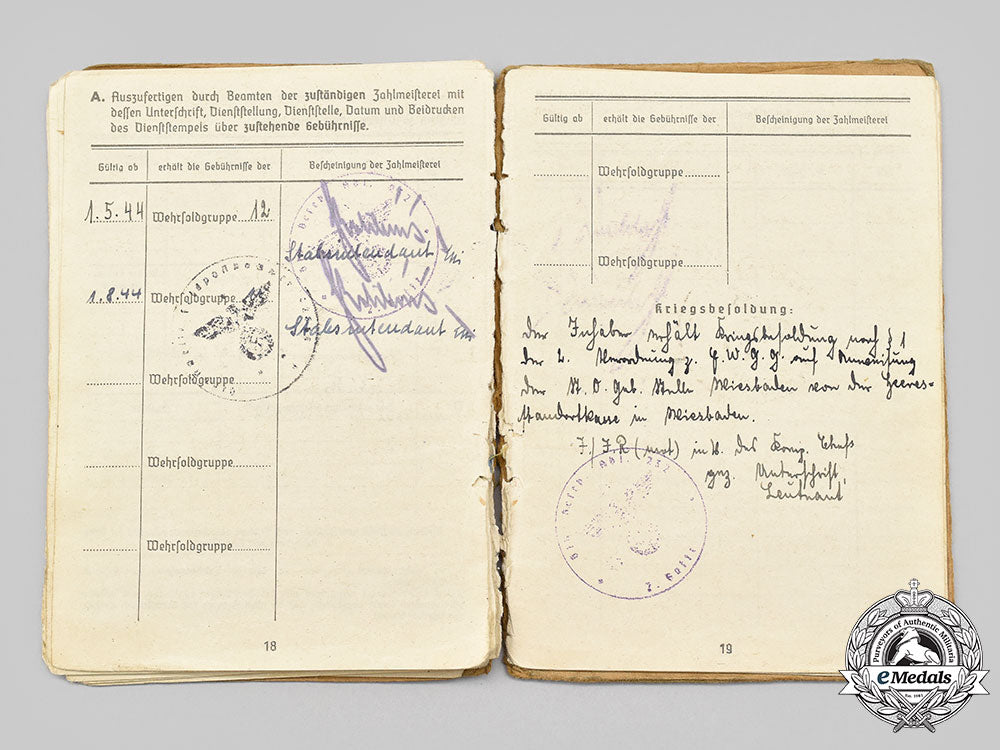 A. Auszufertigen durch Beamten der zuständigen Zahlmeisterei mit
dessen Unterschrift, Dienststellung, Dienststelle, Datum und Beidrucken
des Dienststempels über zustehende Gebührnisse.
Gültig ab erhält die Gebührnisse der Bescheinigung der Zahlmeisterei
1.5.44 Wehrsoldgruppe 12
Stabsintendant
1.8.44 Wehrsoldgruppe
Stabsintendant
Wehrsoldgruppe
Wehrsoldgruppe
Wehrsoldgruppe
18
Gültig ab erhält die Gebührnisse der Bescheinigung der Zahlmeisterei
Wehrsoldgruppe
Wehrsoldgruppe
Kriegsbesoldung:
Der Inhaber erhält Kriegsbesoldung nach § 1
der 2. Verordnung z. E.W.G.G. auf Anweisung
der St. O. Geb. Stelle Wiesbaden von der Heeres-
standortkasse in Wiesbaden.
7/J.R (mot) des Komp. Chefs
gez. Unterschrift,
Leutnant
19
Purveyors of Authentic Militaria
eMedals